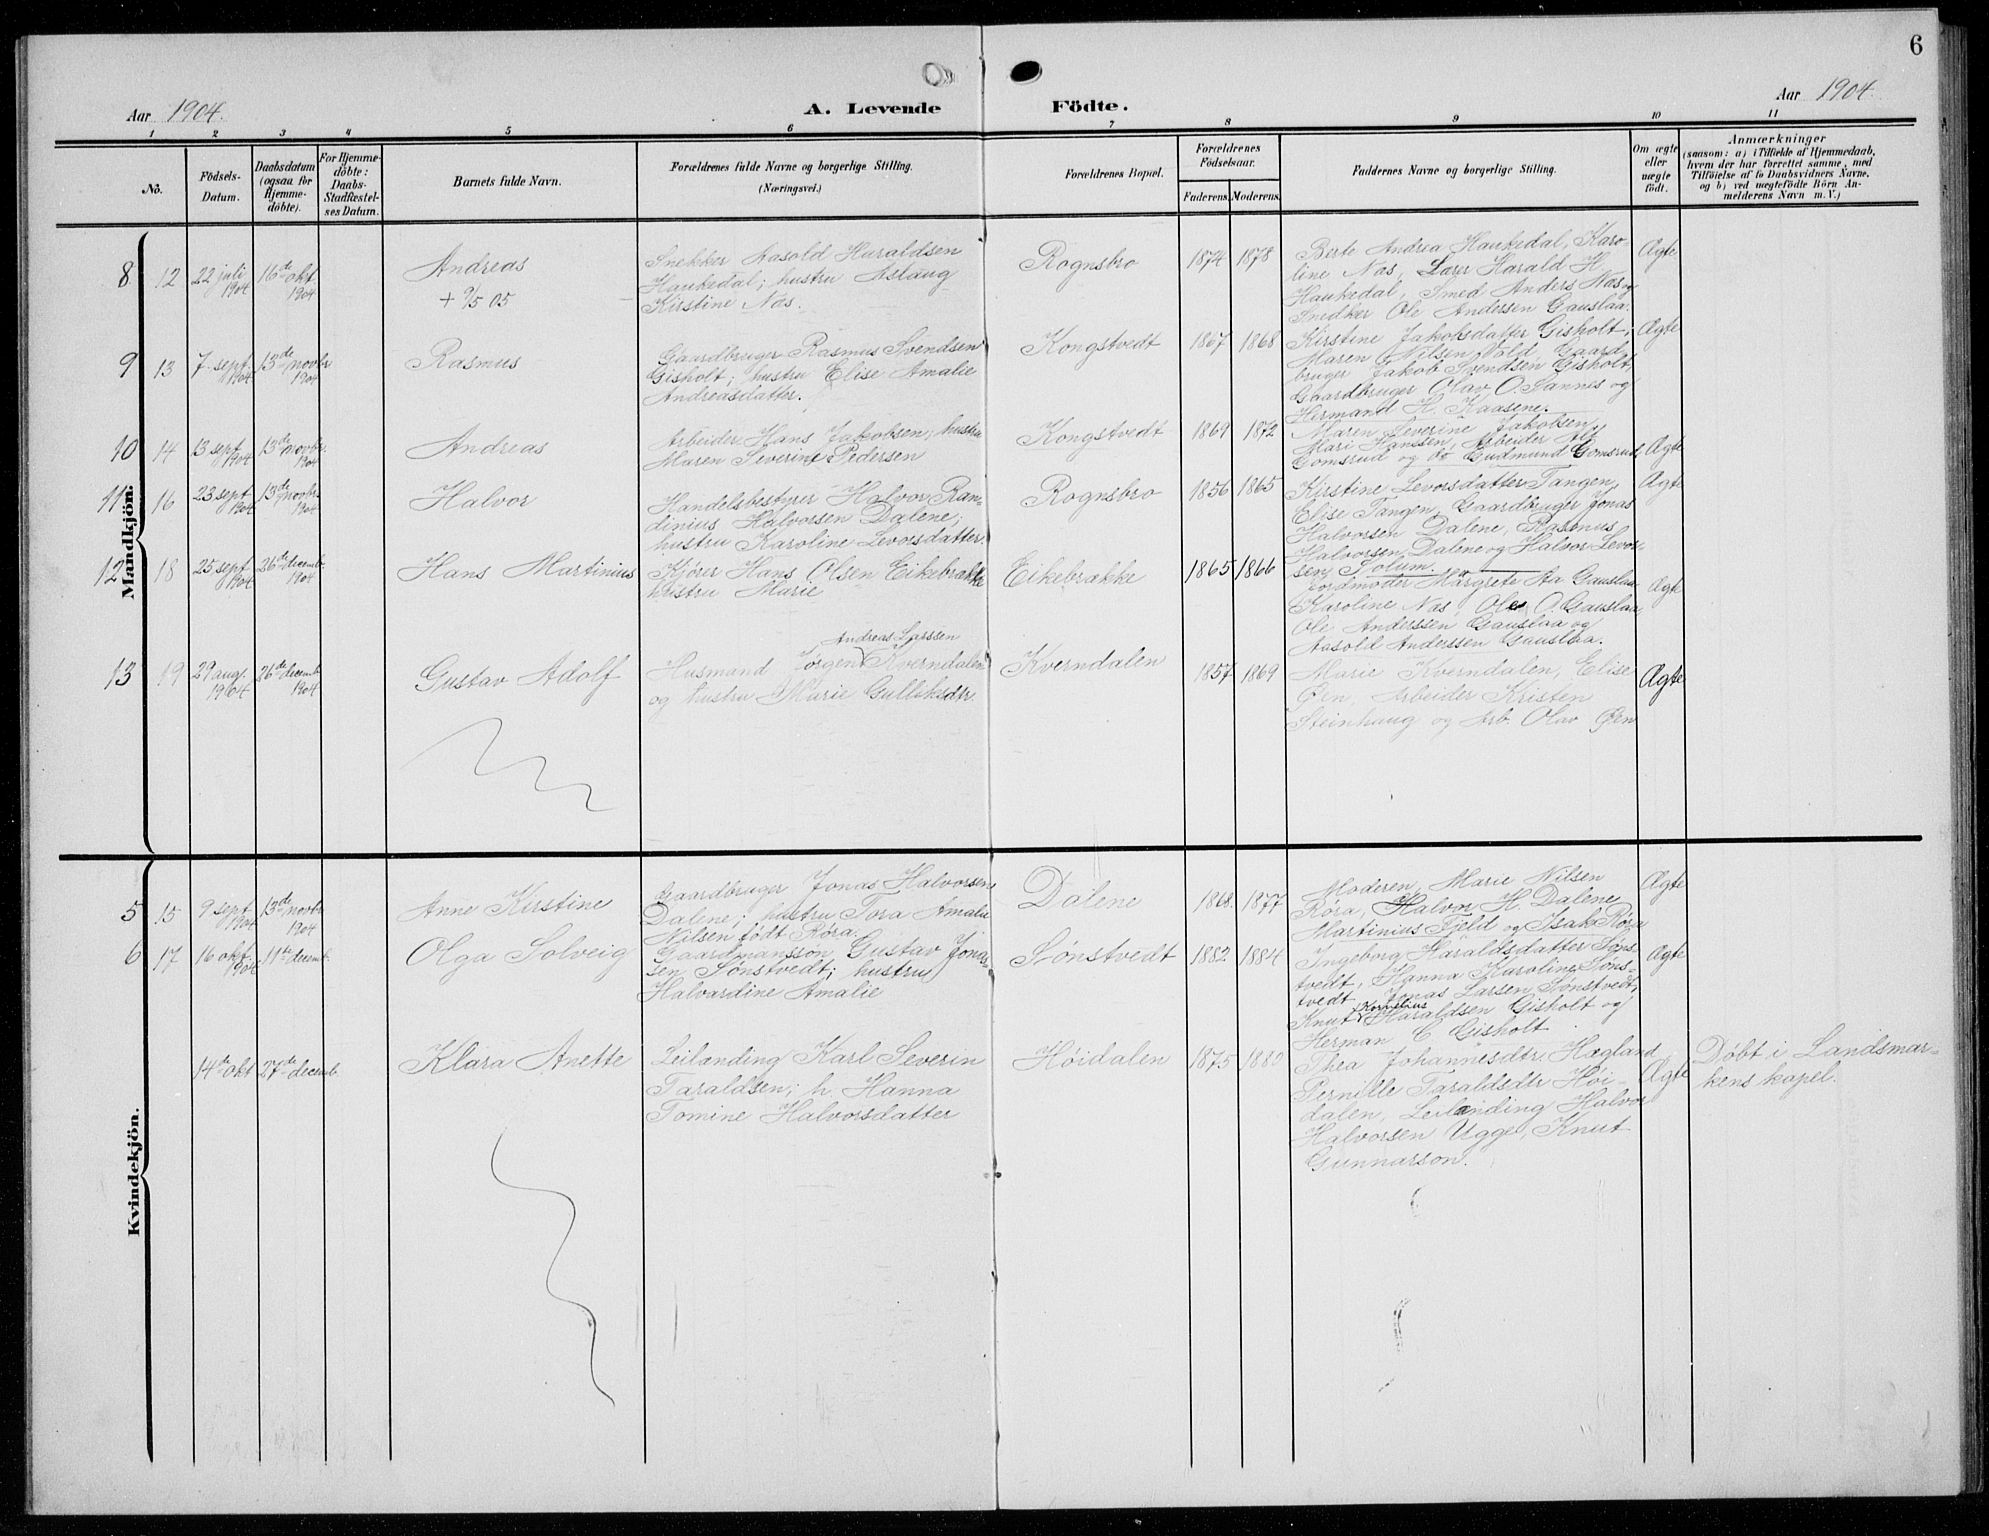 6
Aar 1904.
A. Levende Födte.
Aar 1904.
1 2 3 4 5 6 7 8 9 10 11
No.
Födsels-
Datum.
Daabsdatum
(ogsaa for
Hjemme-
döbte).
For Hjemme-
döbte:
Daabs-
Stadfæstel-
ses Datum.
Barnets fulde Navn.
Forældrenes fulde Navne og borgerlige Stilling.
(Næringsvei.)
Forældrenes Bopæl.
Forældrenes
Födselsaar.
Faderens. Moderens.
Faddernes Navne og borgerlige Stilling.
Om ægte
eller
uægte
födt.
Anmærkninger
(saasom: a) i Tilfælde af Hjemmedaab,
hvem der har forrettet samme, med
Tilföielse af to Daabsvidners Navne,
og b) ved uægtefödte Börn An-
melderens Navn m. V.)
Mandkjön.
8 12
22 juli
1904
16de okt
1904
Andreas
+ 9/5 05
Snekker Aasold Haraldsen
Haukedal; hustru Aslaug
Kirstine Nas.
Rognsbro
1874 1878
Berte Andrea Haukedal, Karo-
line Nas, Larer Harald H
Haukedal, Smed Anders Nas og
Snedker Ole Andersen Gauslaa.
Ægte
9 13
7 sept
1904
13de novbr
1904
Rasmus
Gaardbruger Rasmus Svendsen
Gisholt; hustru Elise Amalie
Andreasdatter.
Kongstvedt
1867 1868
Kirstine Jakobsdatter Gisholt;
Maren Nilsen Vold, Gaard
bruger Jakob Svendsen Gisholt,
Gaardbruger Olav O. Sannes og
Hermand H. Kaasene.
Ægte
10 14
13 sept
1904
13de novbr.
1904
Andreas
Arbeider Hans Jakobsen; hustru
Maren Severine Pedersen
Kongstvedt
1869 1872
Maren Severine Jakobsen,
Mari Hanssen, Arbeider
Gomsrud og do Gudmund Gomsrud,
Ægte
11 16
23 sept
1904
13de novbr.
1904
Halvor
Handelsbestyrer Halvor Ran-
dinius Halvorsen Dalene;
hustru Karoline Levorsdatter.
Rognsbro
1856 1865
Kirstine Levorsdatter Tangen,
Elise Tangen, Gaardbruger Jonas
Halvorsen Dalene, Rasmus
Halvorsen Dalene og Halvor Levor-
sen Solum.
Ægte
12 18
25 sept
1904
26de decemb.
1904
Hans Martinius
Kjører Hans Olsen Eikebrække
hustru Marie
Eikebrække
1865 1866
Jordmoder Margrete Aa Gauslaa
Karoline Nas, Ole O. Gauslaa
Ole Anderssen Gauslaa og
Aasold Anderssen Gauslaa.
Ægte
13 19
29 aug.
1904
26de decemb
1904
Gustav Adolf
Andreas Larssen
Husmand Jørgen Kverndalen
og hustru Marie Gulliksdtr.
Kverndalen
1857 1869
Marie Kverndalen, Elise
Øen, Arbeider Kristen
Steinhaug og Arb. Olav Øen
Ægte
Kvindekjön.
5 15
9 sept
1904
13de novbr
1904
Anne Kirstine
Gaardbruger Jonas Halvorsen
Dalene; hustru Tora Amalie
Nilsen født Røra.
Dalene
1868. 1877
Moderen, Marie Nilsen
Røra, Halvor H. Dalene
Martinius Fjeld og Isak Røra
Ægte
6 17
16 okt.
1904
11te decemb.
Olga Solveig
Gaardmansson Gustav Jonas-
sen Sønstvedt; hustru
Halvardine Amalie
Sønstvedt
1882 1884
Ingeborg Haraldsdatter Søns-
tvedt, Hanna Karoline Søns-
tvedt Jonas Larsen Sønstvedt,
Kornelius
Knut Haraldsen Gisholt og
Herman C Gisholt.
Ægte
14de okt
27de decemb.
Klara Anette
Leilanding Karl Severin
Taraldsen; h Hanna
Tomine Halvorsdatter
Høidalen
1875
Thea Johannesdtr. Hægland
Pernille Taraldsdtr Høi-
dalen, Leilanding Halvor
Halvorsen Ugge, Knut
Gunnarson.
Ægte
Døbt i Landsmar-
kens kapel.